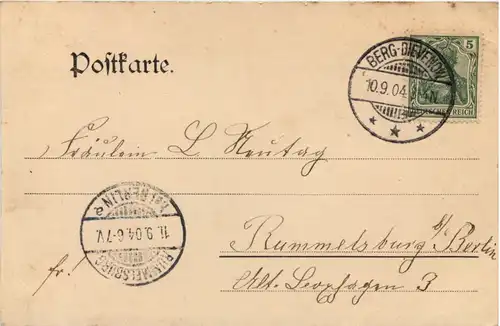 Postkarte.
BERG-DIEVENOW
10.9.04
5
DEUTSCHES REICH
Fräulein L Neutag
(* BERLIN *)
11.9.04.6-7V.
RUMMELSBURG
Rummelsburg b/ Berlin
fr!
Alt-Boxhagen 3